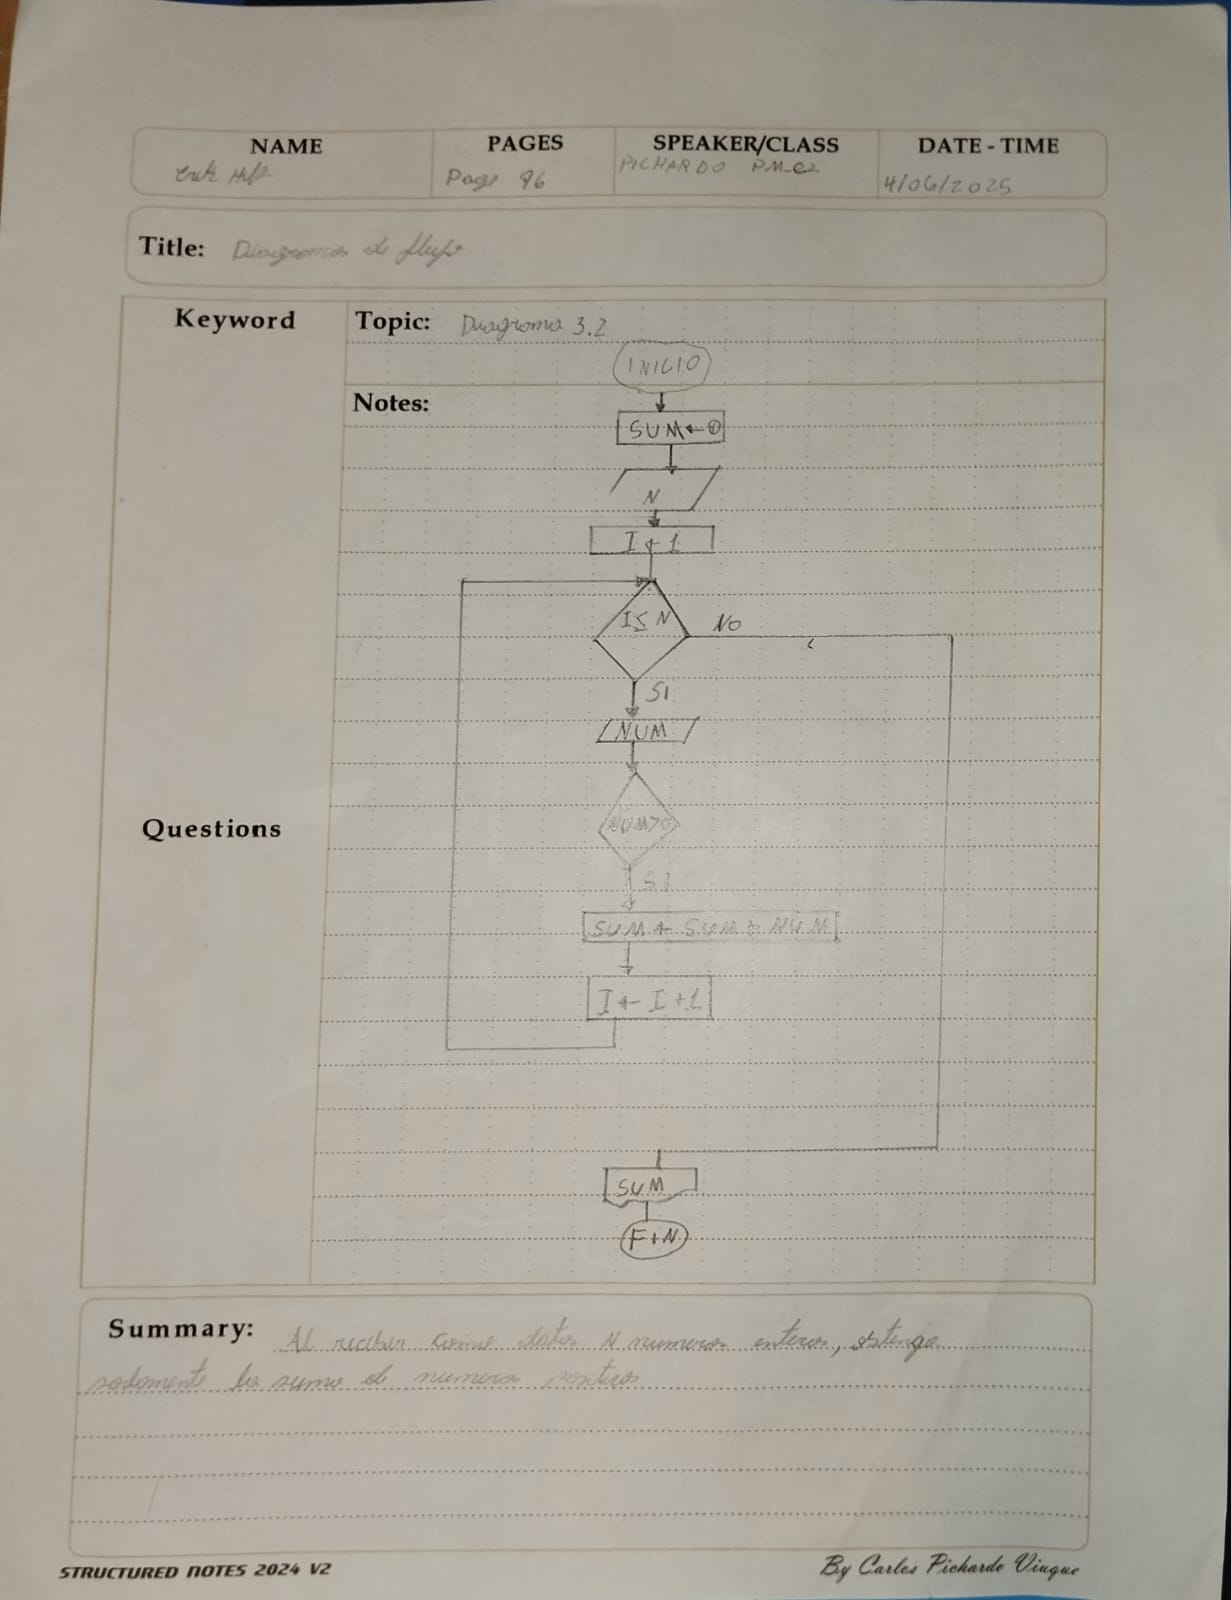 NAME
PAGES
SPEAKER/CLASS
DATE - TIME
Page 96
PICHARDO PM-C2
4/06/2025
Title: Diagramas de flujo
Keyword
Topic: Diagrama 3.2
INICIO
Notes:
SUM ← 0
N
I ← 1
I ≤ N
NO
SI
NUM
NUM>0
Questions
SI
SUM ← SUM + NUM
I ← I + 1
SUM
FIN
Summary: Al recibir como datos N numeros enteros, obtenga
solamente la suma de numeros positivos
STRUCTURED NOTES 2024 V2
By Carlos Pichardo Viuque